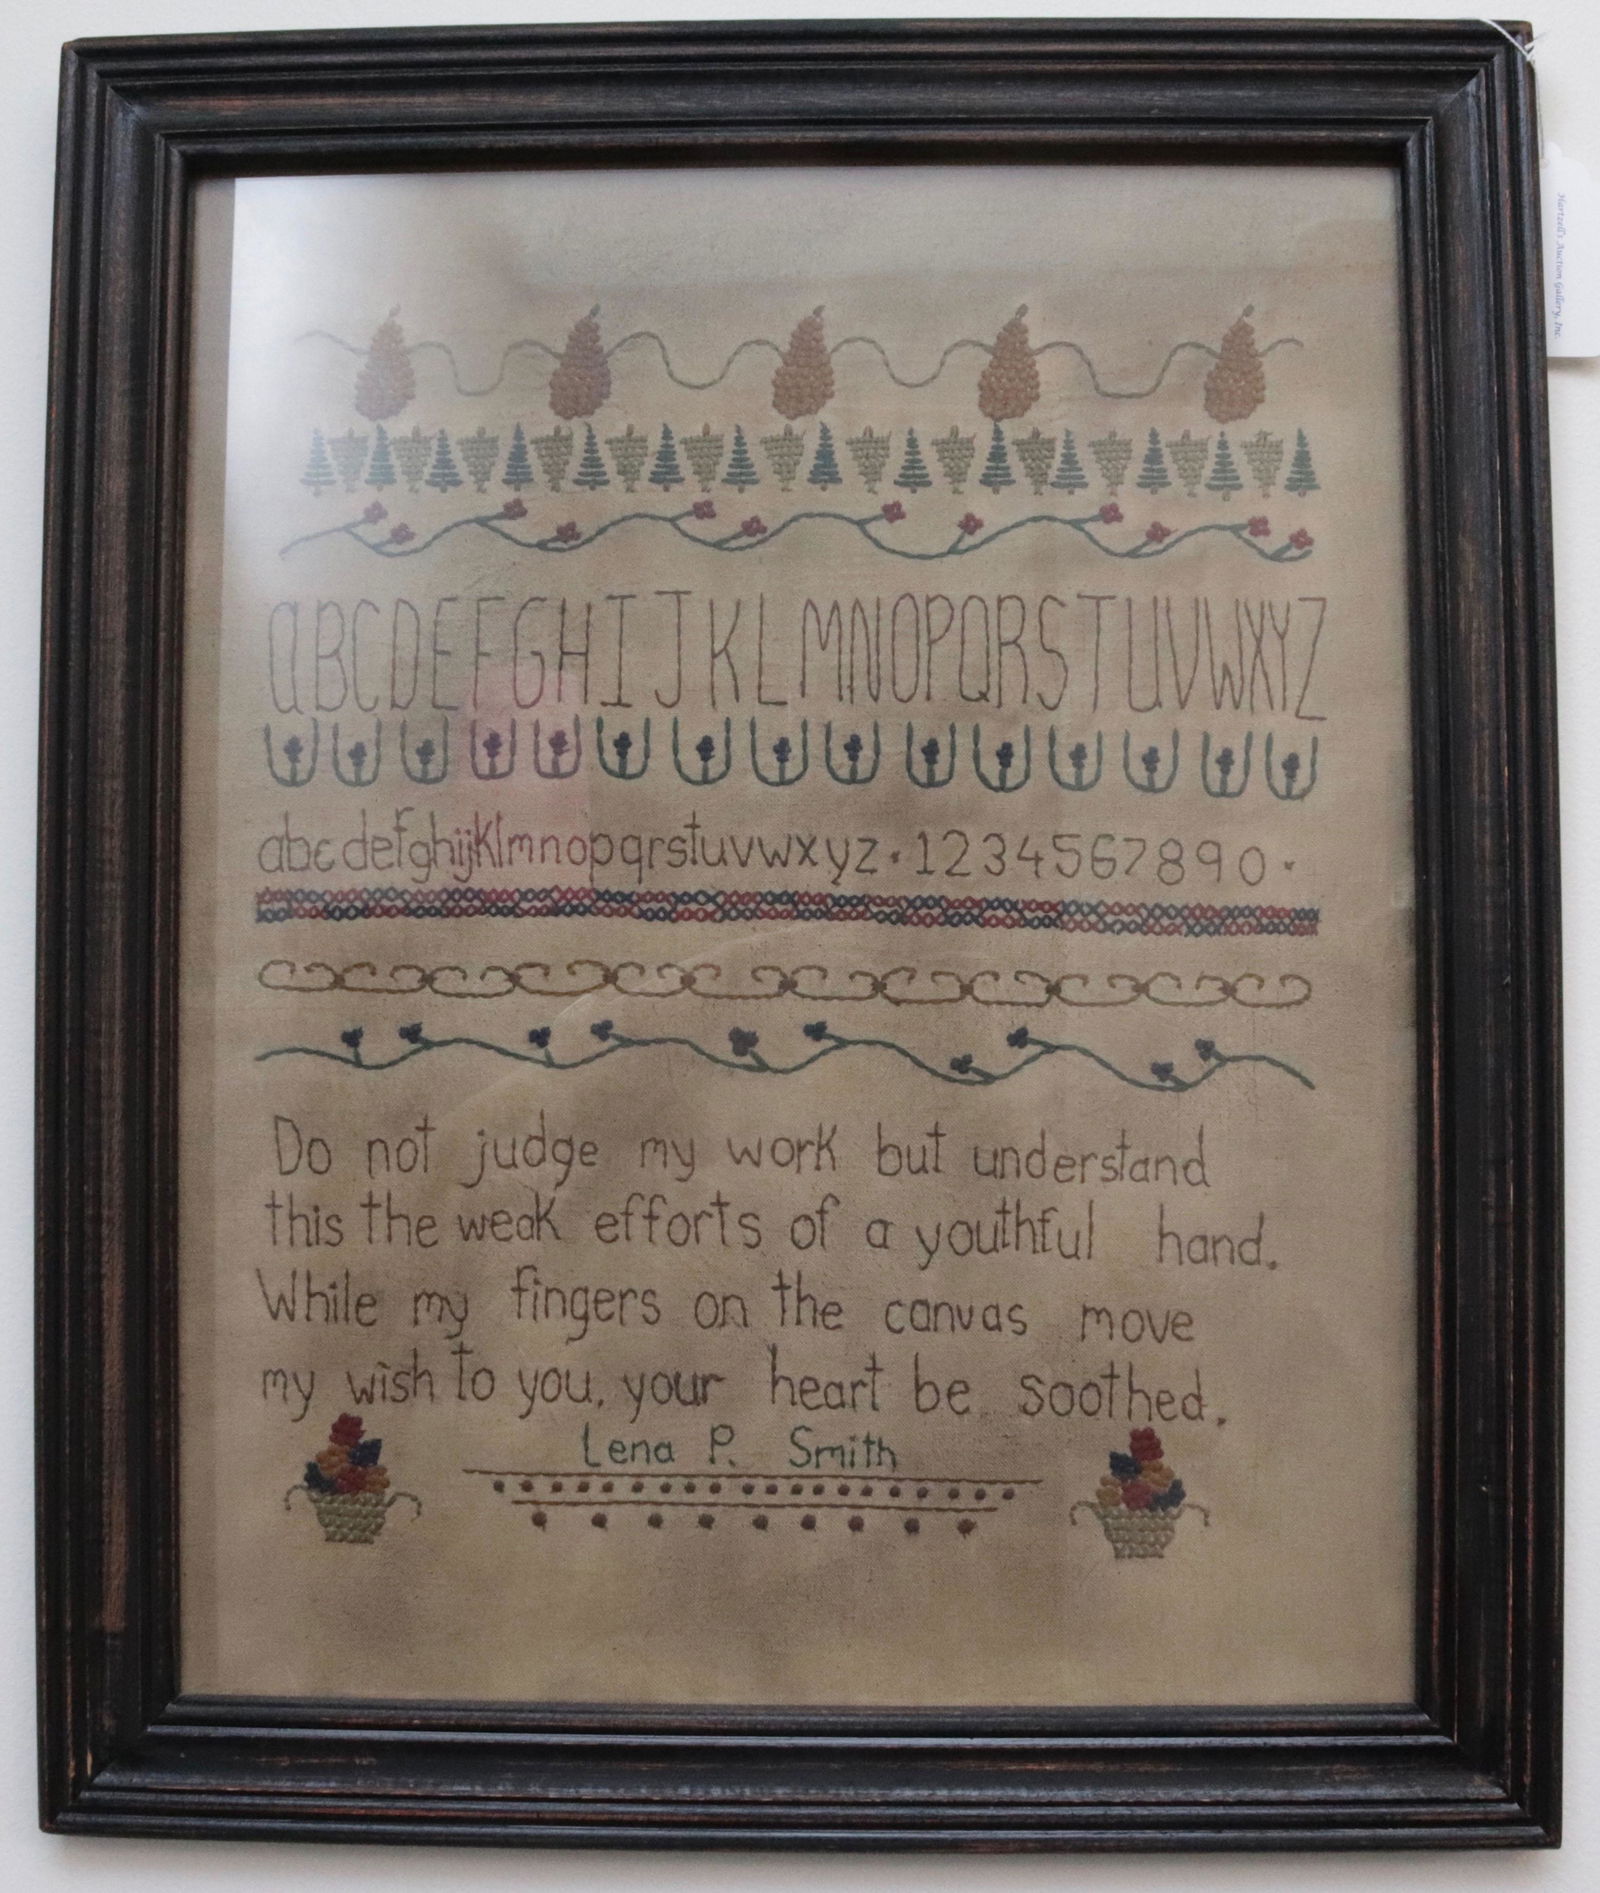 aBCDEFGHIJKLMNOPQRSTUVWXYZ
abcdefghijklmnopqrstuvwxyz · 1234567890 ·
Do not judge my work but understand
this the weak efforts of a youthful hand.
While my fingers on the canvas move
my wish to you, your heart be soothed.
Lena P. Smith
Hartzell's Auction Gallery, Inc.